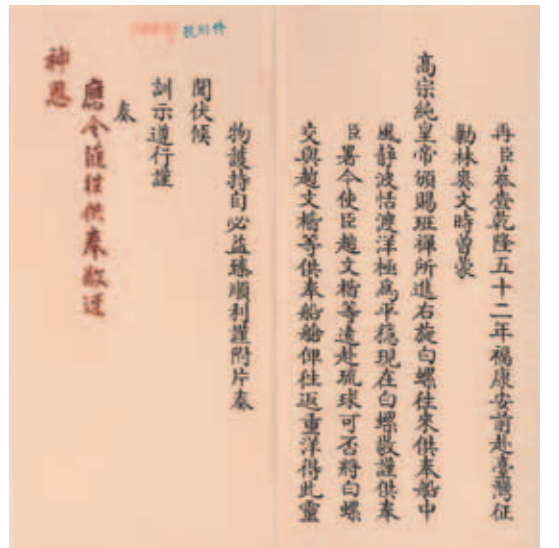 再臣恭查乾隆五十二年福康安前赴臺灣征
勦林爽文時曾蒙
高宗純皇帝頒賜班禪所進右旋白螺往來供奉船中
風靜波恬渡洋極爲平穩現在白螺敬謹供奉
臣署今使臣趙文楷等遠赴琉球可否將白螺
交與趙文楷等供奉船艙俾往返重洋得此靈
物護持自必益臻順利謹附片奏
聞伏候
訓示遵行謹
奏
應令隨往供奉敬迓
神恩